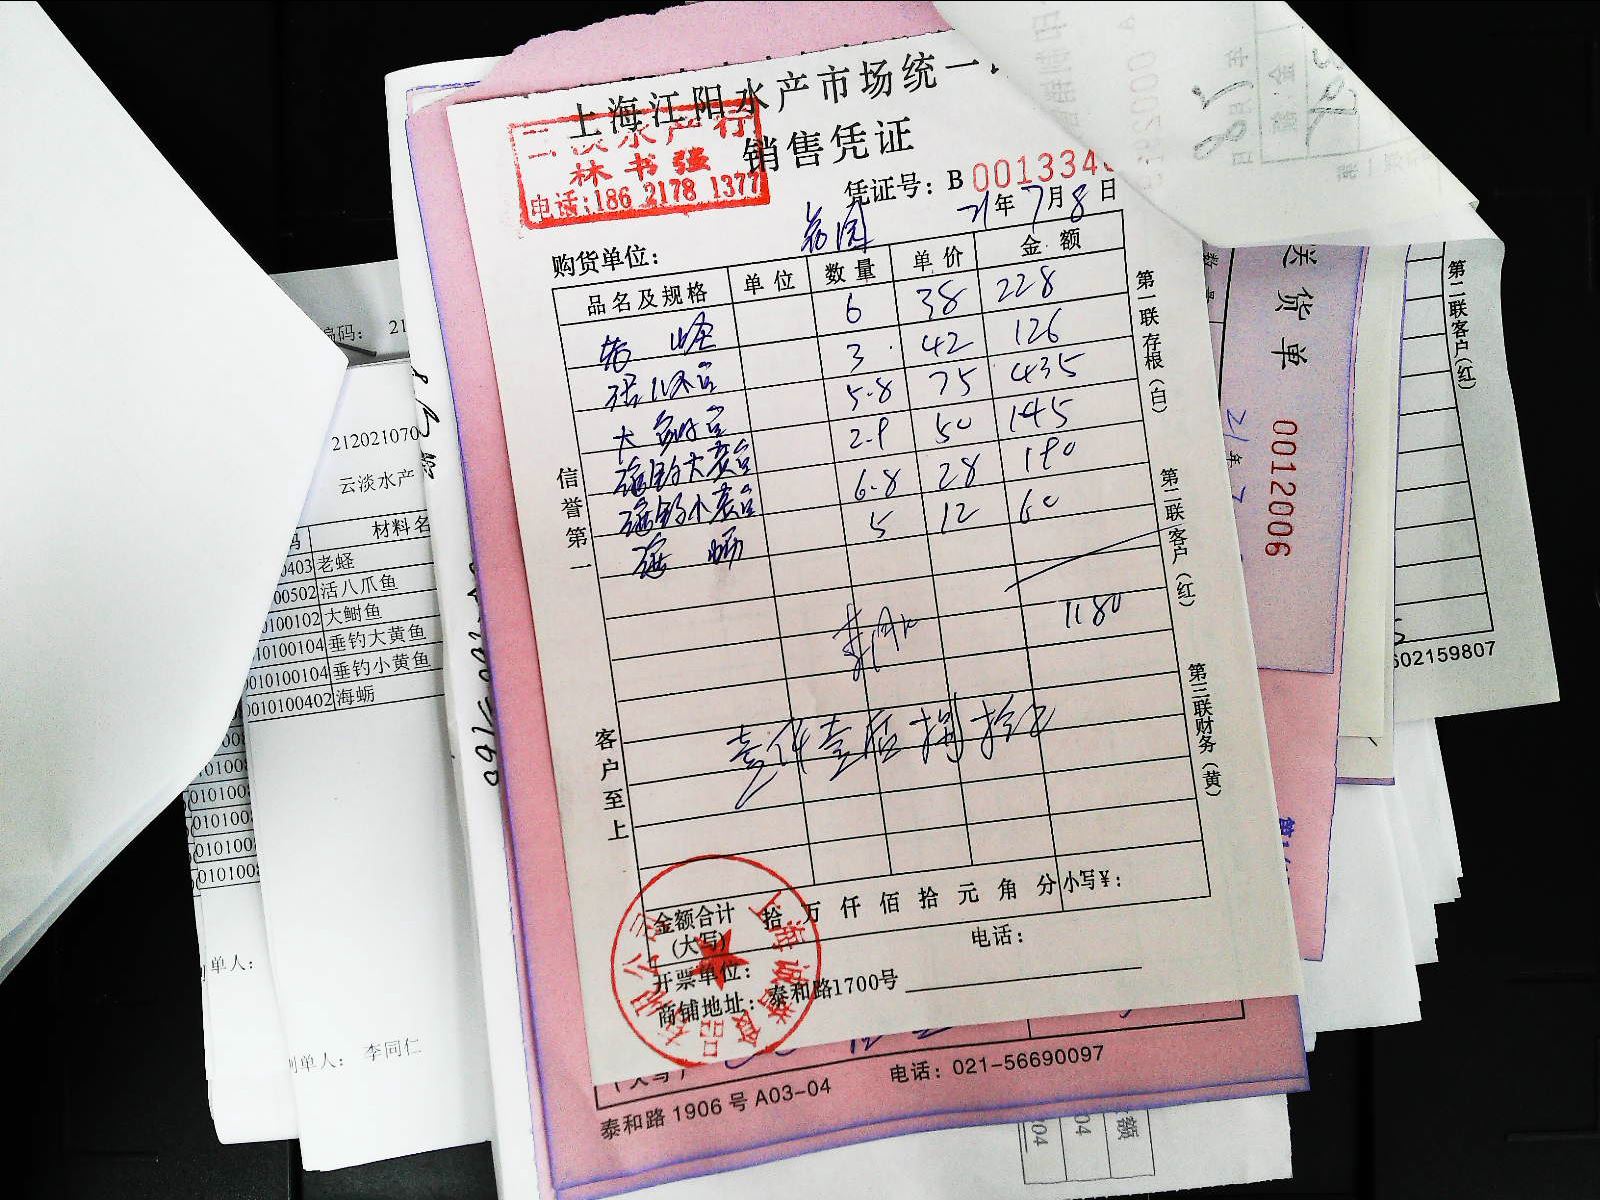 上海江阳水产市场统一
销售凭证
云淡水产行
林书强
电话:186 2178 1377
凭证号: B 001334
21年7月8日
购货单位:
品名及规格 单位 数量 单价 金额
老蛏 6 38 228
3 42 126
大鲥鱼 5.8 75 435
垂钓大黄鱼 2.9 50 145
垂钓小黄鱼 6.8 28 190
海蛎 5 12 60
1180
壹仟壹佰捌拾元
信誉第一
客户至上
第一联存根(白)
第二联客户(红)
第三联财务(黄)
金额合计(大写) 拾 万 仟 佰 拾 元 角 分 小写¥:
开票单位: 电话:
商铺地址: 泰和路1700号
(大写)
泰和路1906号A03-04 电话: 021-56690097
编码: 21
212021070
云淡水产
码 材料名
0403 老蛏
00502 活八爪鱼
0100102 大鲥鱼
010100104 垂钓大黄鱼
010100104 垂钓小黄鱼
0010100402 海蛎
01008
010100
010100
010100
010100
单人:
制单人: 李同仁
送货单
0012006
21年7
第二联客户(红)
602159807